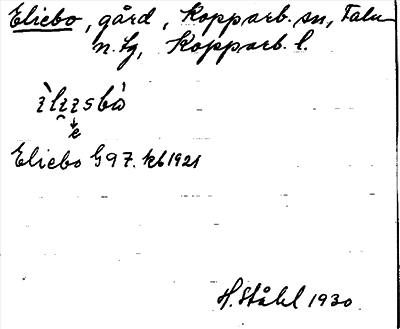 Eliebo, gård, Kopparb. sn, Falu
n. tg, Kopparb. l.
ìlɪɪsbò
e
Eliebo G 97. kb 1921
H. Ståhl 1930